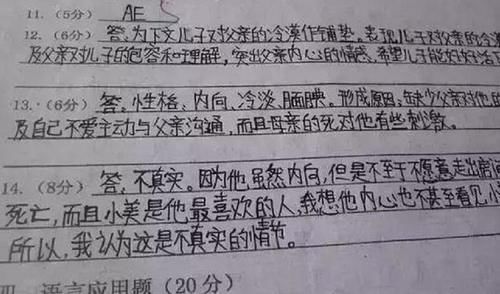 11. (5分) AE
12. (6分) 答:为下文儿子对父亲的冷漠作铺垫。表现儿子对父亲的冷漠
及父亲对儿子的包容和理解,突出父亲内心的情感、希望儿子能好好活下
13. (6分) 答:性格、内向、冷淡、腼腆。形成原因:缺少父亲对他的
及自己不爱主动与父亲沟通,而且母亲的死对他有些刺激。
14. (8分) 答,不真实。因为他虽然内向,但是不至于不愿意走出房间
死亡,而且小美是他最喜欢的人,我想他内心也不甚至看见小
所以,我认为这是不真实的情节。
四、语言应用题(20分)